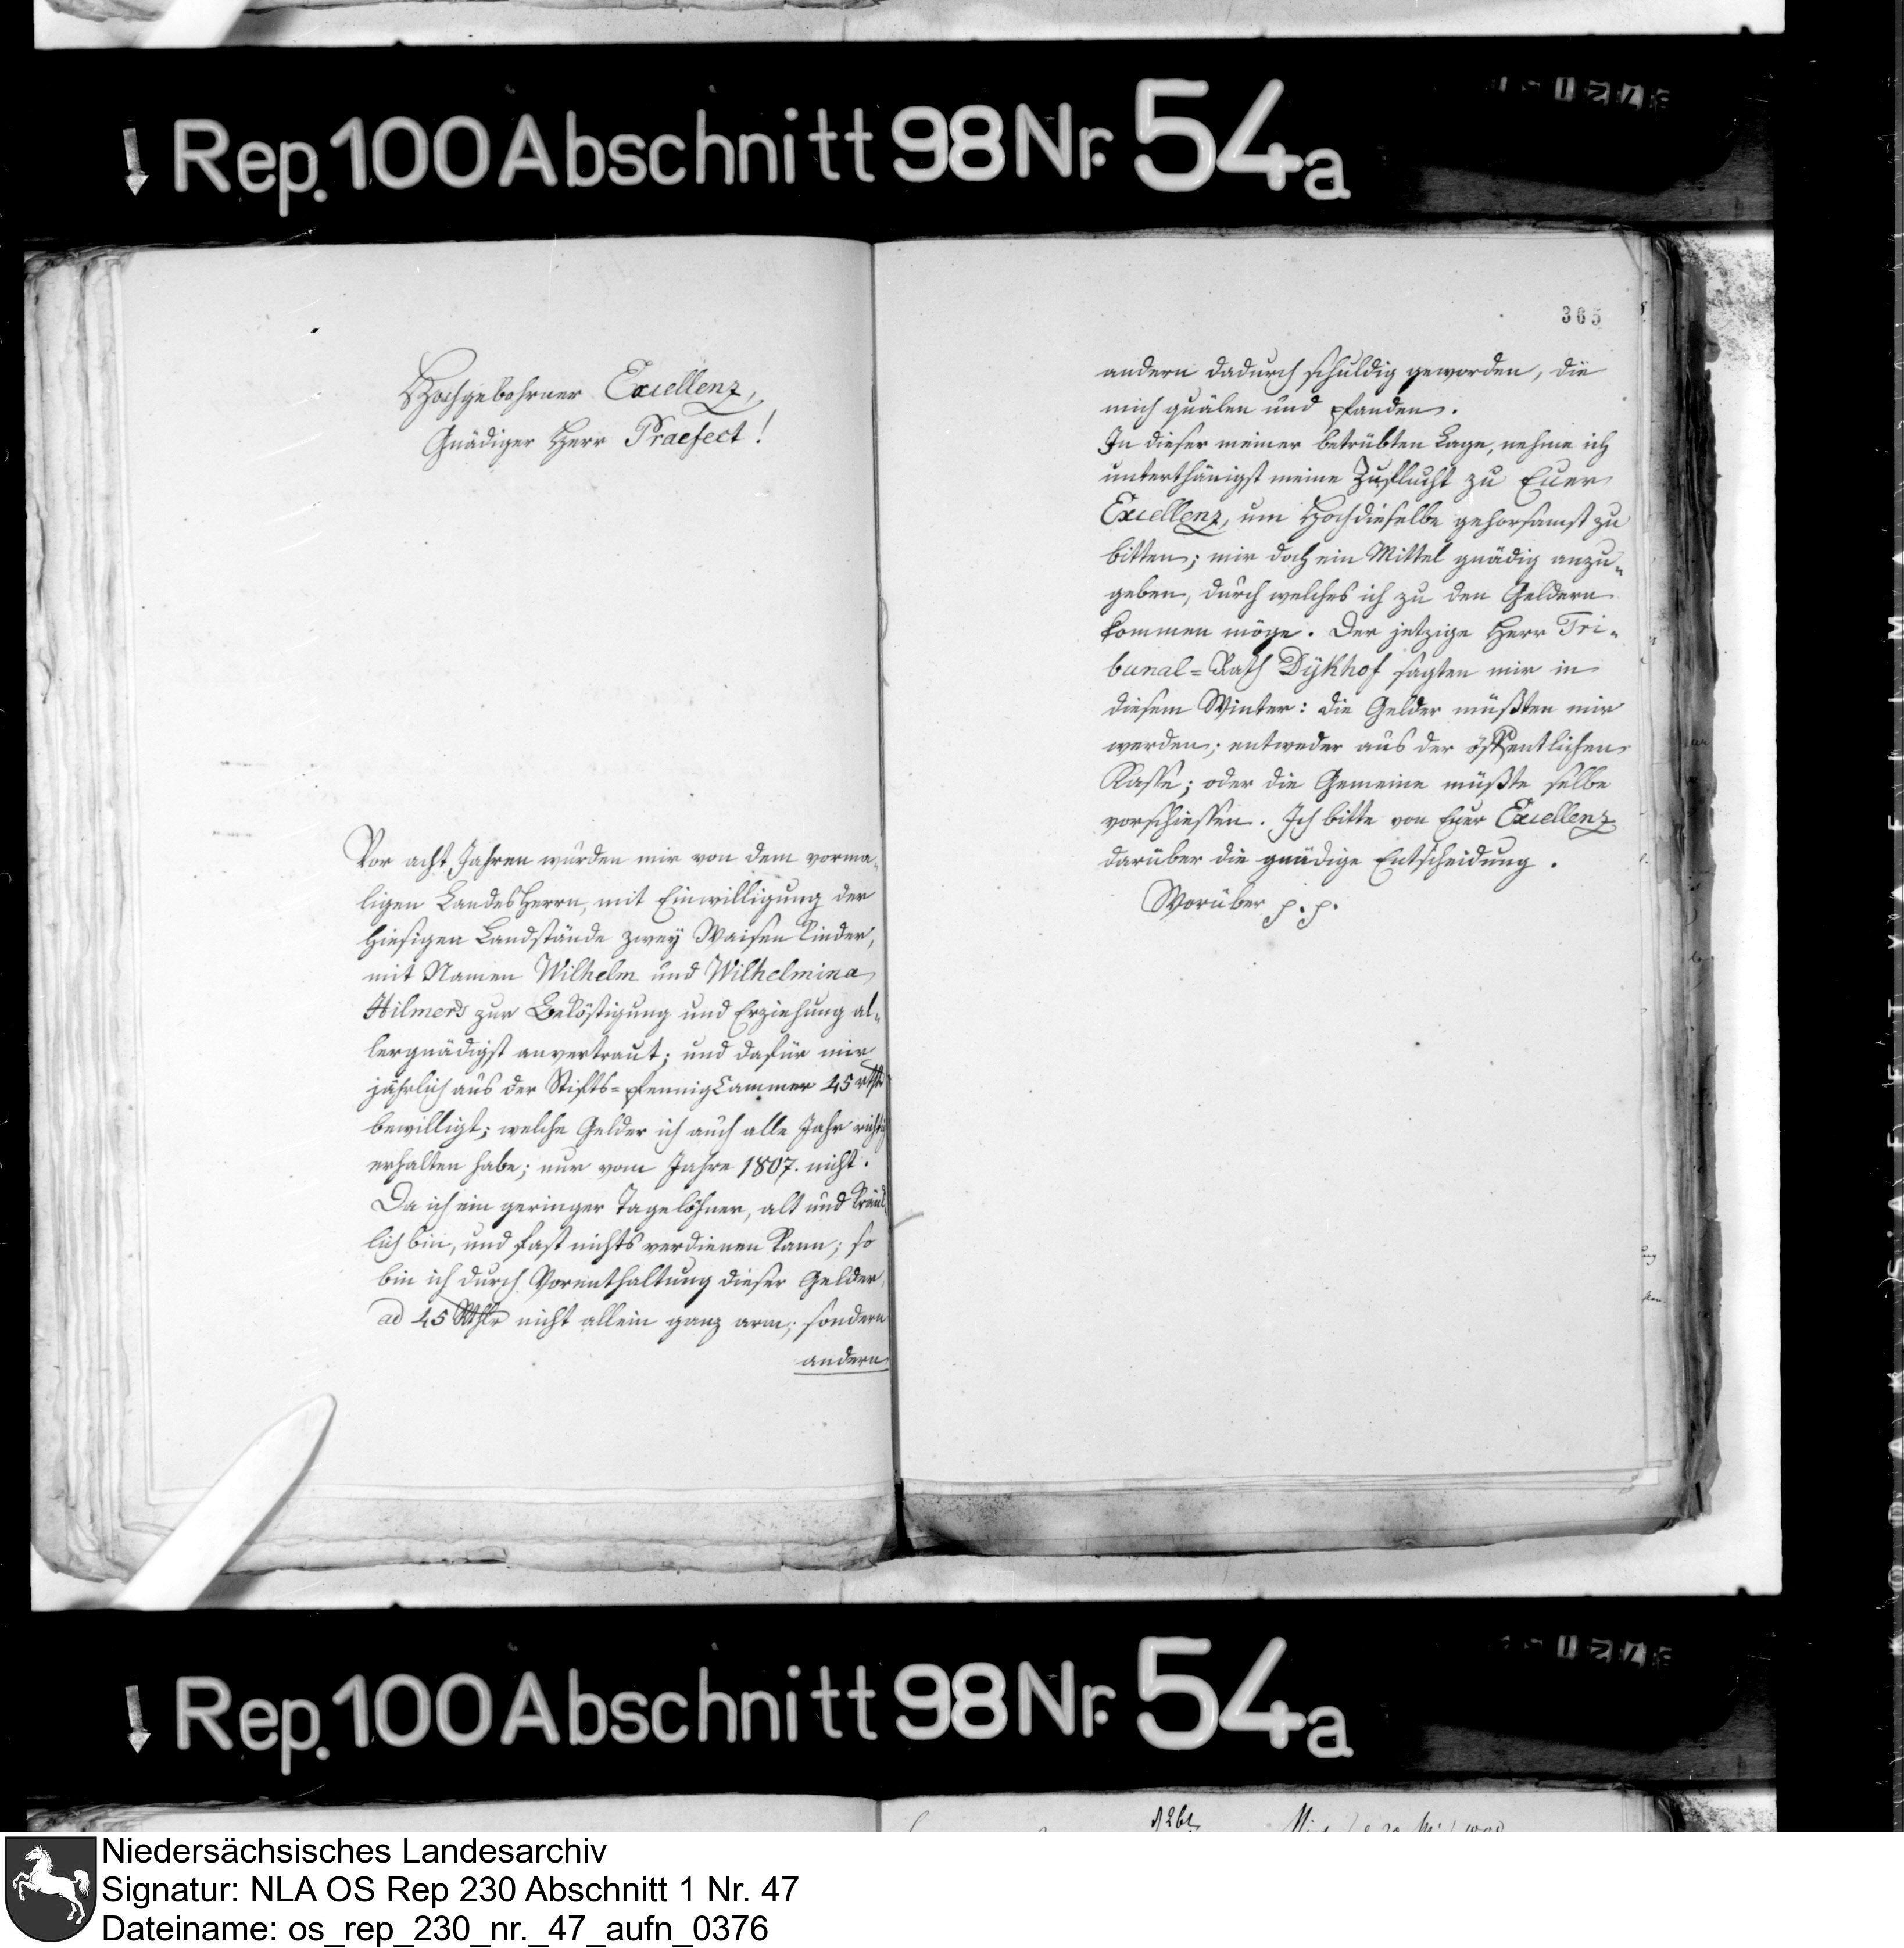 Rep. 100 Abschnitt 98 Nr. 54a
Hochgebohrner Excellenz,
Gnädiger Herr Praefect!
Vor acht Jahren wurden mir von dem vorma„
ligen LandesHerrn, mit Einwilligung der
hiesigen Landstände zwey Waisenkinder,
mit Namen Wilhelm und Wilhelmina
Hilmers zur Beköstigung und Erziehung al„
lergnädigst anvertraut; und dafür mir
jährlich aus der Stifts=pfennigkammer 45 rthlr
bewilligt; welche Gelder ich auch alle Jahr richtig
erhalten habe; nur vom Jahre 1807. nicht.
Da ich ein geringer Tagelöhner, alt und kränk
lich bin, und fast nichts verdienen kann; so
bin ich durch Vorenthaltung dieser Gelder
ad 45 Rthlr nicht allein ganz arm; sondern
andern
365
andern dadurch schuldig geworden, die
mich quälen und pfanden.
In dieser meiner betrübten Lage, nehme ich
unterthänigst meine Zuflucht zu Euer
Excellenz, um Hochdieselbe gehorsamst zu
bitten; mir doch ein Mittel gnädig anzu„
geben, durch welches ich zu den Geldern
kommen möge. Der jetzige Herr Tri„
bunal=Rath Dÿkhof sagten mir in
diesem Winter: die Gelder müßten mir
werden; entweder aus der öffentlichen
Kasse; oder die Gemeine müßte selbe
vorschiessen. Ich bitte von Euer Excellenz
darüber die gnädige Entscheidung.
Worüber p. p.
Rep. 100 Abschnitt 98 Nr. 54a
Niedersächsisches Landesarchiv
Signatur: NLA OS Rep 230 Abschnitt 1 Nr. 47
Dateiname: os_rep_230_nr._47_aufn_0376